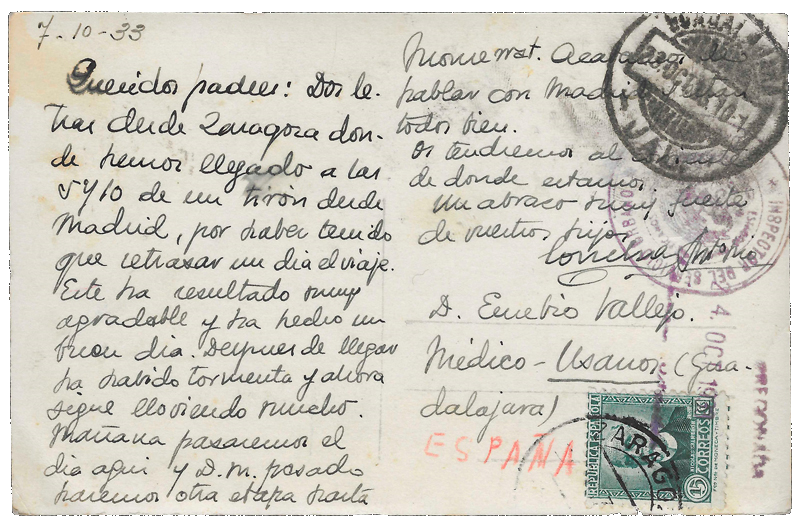 7-10-33
Queridos padres: Dos le-
tras desde Zaragoza don-
de hemos llegado a las
5 y 10 de un tirón desde
Madrid, por haber tenido
que retrasar un dia el viaje.
Este ha resultado muy
agradable y ha hecho un
buen dia. Despues de llegar
ha habido tormenta y ahora
sigue lloviendo mucho.
Mañana pasaremos el
dia aqui y D.m. pasado
haremos otra etapa hasta
Monserrat. Acabamos de
hablar con Madrid y estan
todos bien.
Os tendremos al corriente
de donde estamos.
Un abrazo muy fuerte
de vuestros hijos
Antonio
D. Eusebio Vallejo.
Médico - Usanos (Gua-
dalajara)
ESPAÑA
GUADALAJARA
OCT
INSPECTOR DEL
4 OCT 19
REPUBLICA ESPAÑOLA
CORREOS
15
ZARAGO